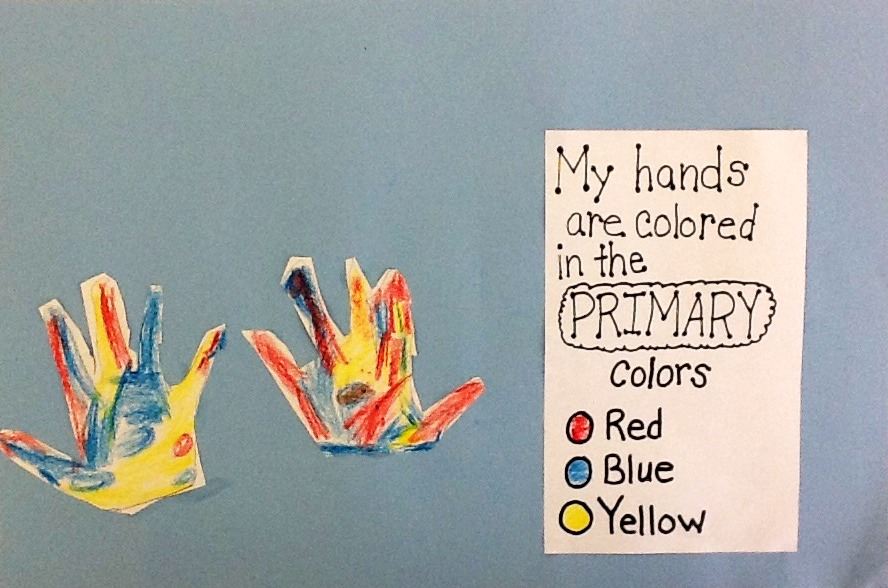 My hands
are colored
in the
PRIMARY
colors
Red
Blue
Yellow